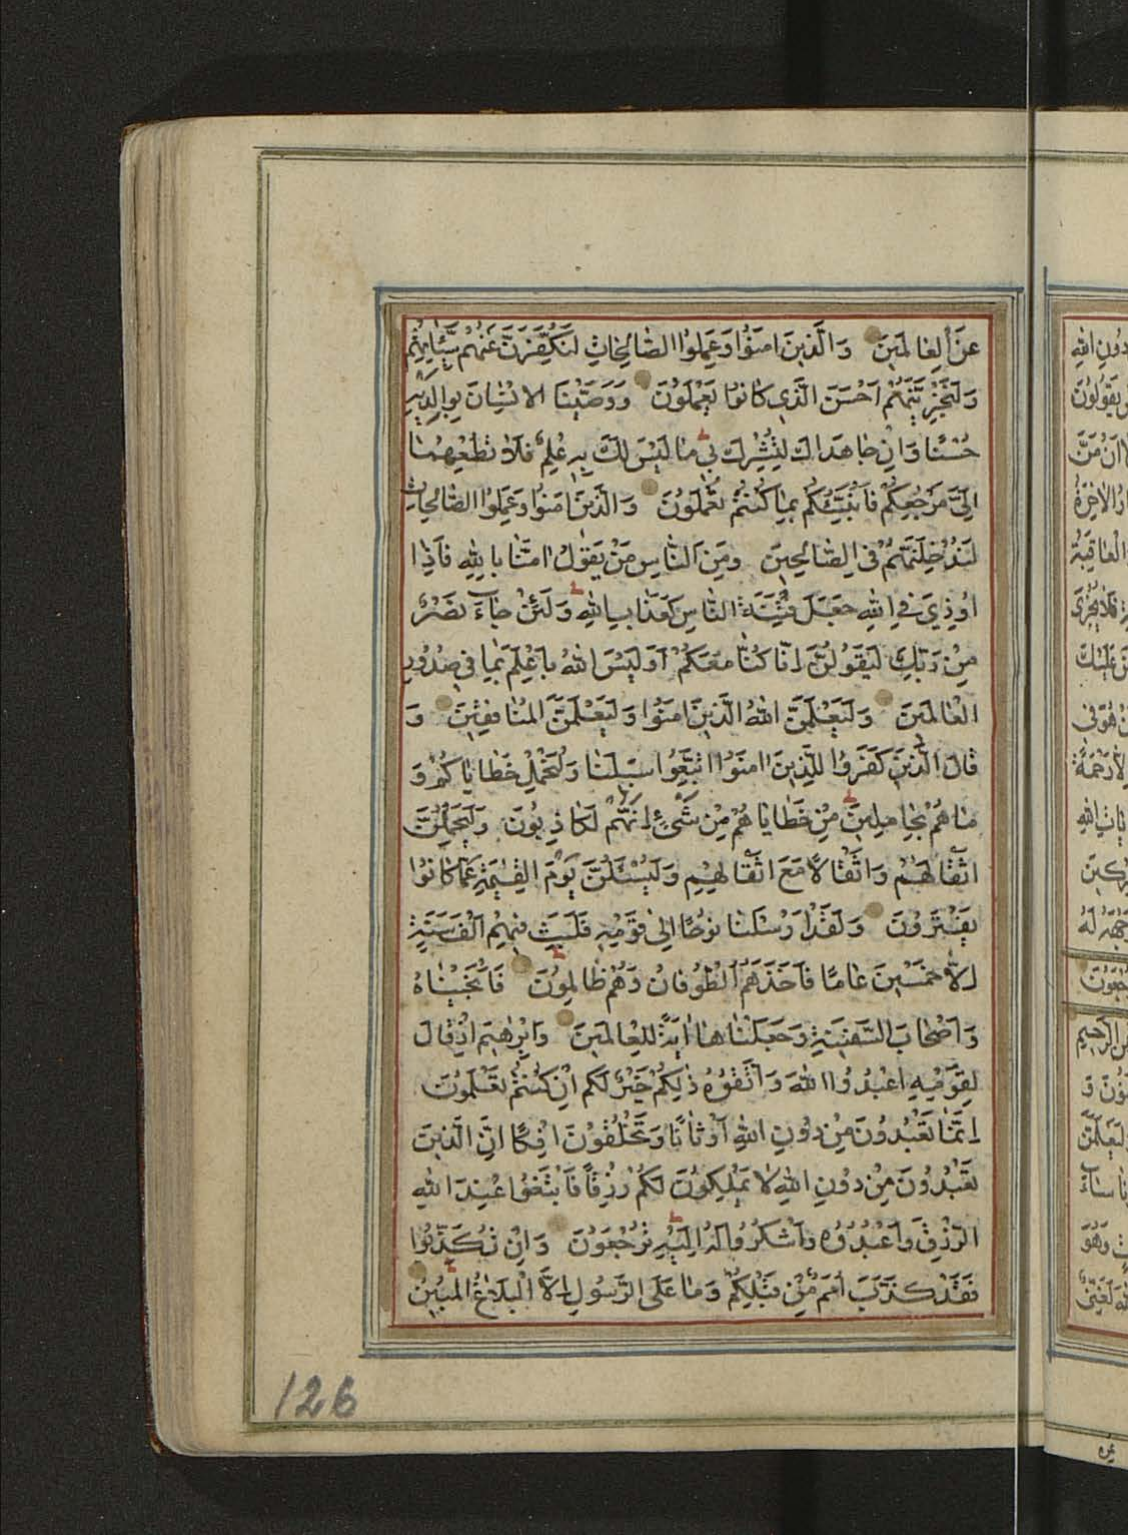 عَنِ الْعَالَمِينَ وَالَّذِينَ امَنُوا وَعَمِلُوا الصَّالِحَاتِ لَنُكَفِّرَنَّ عَنْهُمْ سَيِّئَاتِهِمْ
وَلَنَجْزِيَنَّهُمْ اَحْسَنَ الَّذِي كَانُوا يَعْمَلُونَ وَوَصَّيْنَا الْاِنْسَانَ بِوَالِدَيْهِ
حُسْنًا وَاِنْ جَاهَدَاكَ لِتُشْرِكَ بِي مَا لَيْسَ لَكَ بِهِ عِلْمٌ فَلَا تُطِعْهُمَا
اِلَيَّ مَرْجِعُكُمْ فَاُنَبِّئُكُمْ بِمَا كُنْتُمْ تَعْمَلُونَ وَالَّذِينَ امَنُوا وَعَمِلُوا الصَّالِحَاتِ
لَنُدْخِلَنَّهُمْ فِي الصَّالِحِينَ وَمِنَ النَّاسِ مَنْ يَقُولُ امَنَّا بِاللهِ فَاِذَا
اُوذِيَ فِي اللهِ جَعَلَ فِتْنَةَ النَّاسِ كَعَذَابِ اللهِ وَلَئِنْ جَاءَ نَصْرٌ
مِنْ رَبِّكَ لَيَقُولُنَّ اِنَّا كُنَّا مَعَكُمْ اَوَلَيْسَ اللهُ بِاَعْلَمَ بِمَا فِي صُدُورِ
الْعَالَمِينَ وَلَيَعْلَمَنَّ اللهُ الَّذِينَ امَنُوا وَلَيَعْلَمَنَّ الْمُنَافِقِينَ وَ
قَالَ الَّذِينَ كَفَرُوا لِلَّذِينَ امَنُوا اتَّبِعُوا سَبِيلَنَا وَلْنَحْمِلْ خَطَايَاكُمْ وَ
مَا هُمْ بِحَامِلِينَ مِنْ خَطَايَاهُمْ مِنْ شَيْءٍ اِنَّهُمْ لَكَاذِبُونَ وَلَيَحْمِلُنَّ
اَثْقَالَهُمْ وَاَثْقَالًا مَعَ اَثْقَالِهِمْ وَلَيُسْئَلُنَّ يَوْمَ الْقِيمَةِ عَمَّا كَانُوا
يَفْتَرُونَ وَلَقَدْ اَرْسَلْنَا نُوحًا اِلَى قَوْمِهِ فَلَبِثَ فِيهِمْ اَلْفَ سَنَةٍ
اِلَّا خَمْسِينَ عَامًا فَاَخَذَهُمُ الطُّوفَانُ وَهُمْ ظَالِمُونَ فَاَنْجَيْنَاهُ
وَاَصْحَابَ السَّفِينَةِ وَجَعَلْنَاهَا ايَةً لِلْعَالَمِينَ وَاِبْرٰهِيمَ اِذْ قَالَ
لِقَوْمِهِ اعْبُدُوا اللهَ وَاتَّقُوهُ ذٰلِكُمْ خَيْرٌ لَكُمْ اِنْ كُنْتُمْ تَعْلَمُونَ
اِنَّمَا تَعْبُدُونَ مِنْ دُونِ اللهِ اَوْثَانًا وَتَخْلُقُونَ اِفْكًا اِنَّ الَّذِينَ
تَعْبُدُونَ مِنْ دُونِ اللهِ لَا يَمْلِكُونَ لَكُمْ رِزْقًا فَابْتَغُوا عِنْدَ اللهِ
الرِّزْقَ وَاعْبُدُوهُ وَاشْكُرُوا لَهُ اِلَيْهِ تُرْجَعُونَ وَاِنْ تُكَذِّبُوا
فَقَدْ كَذَّبَ اُمَمٌ مِنْ قَبْلِكُمْ وَمَا عَلَى الرَّسُولِ اِلَّا الْبَلَاغُ الْمُبِينُ
126